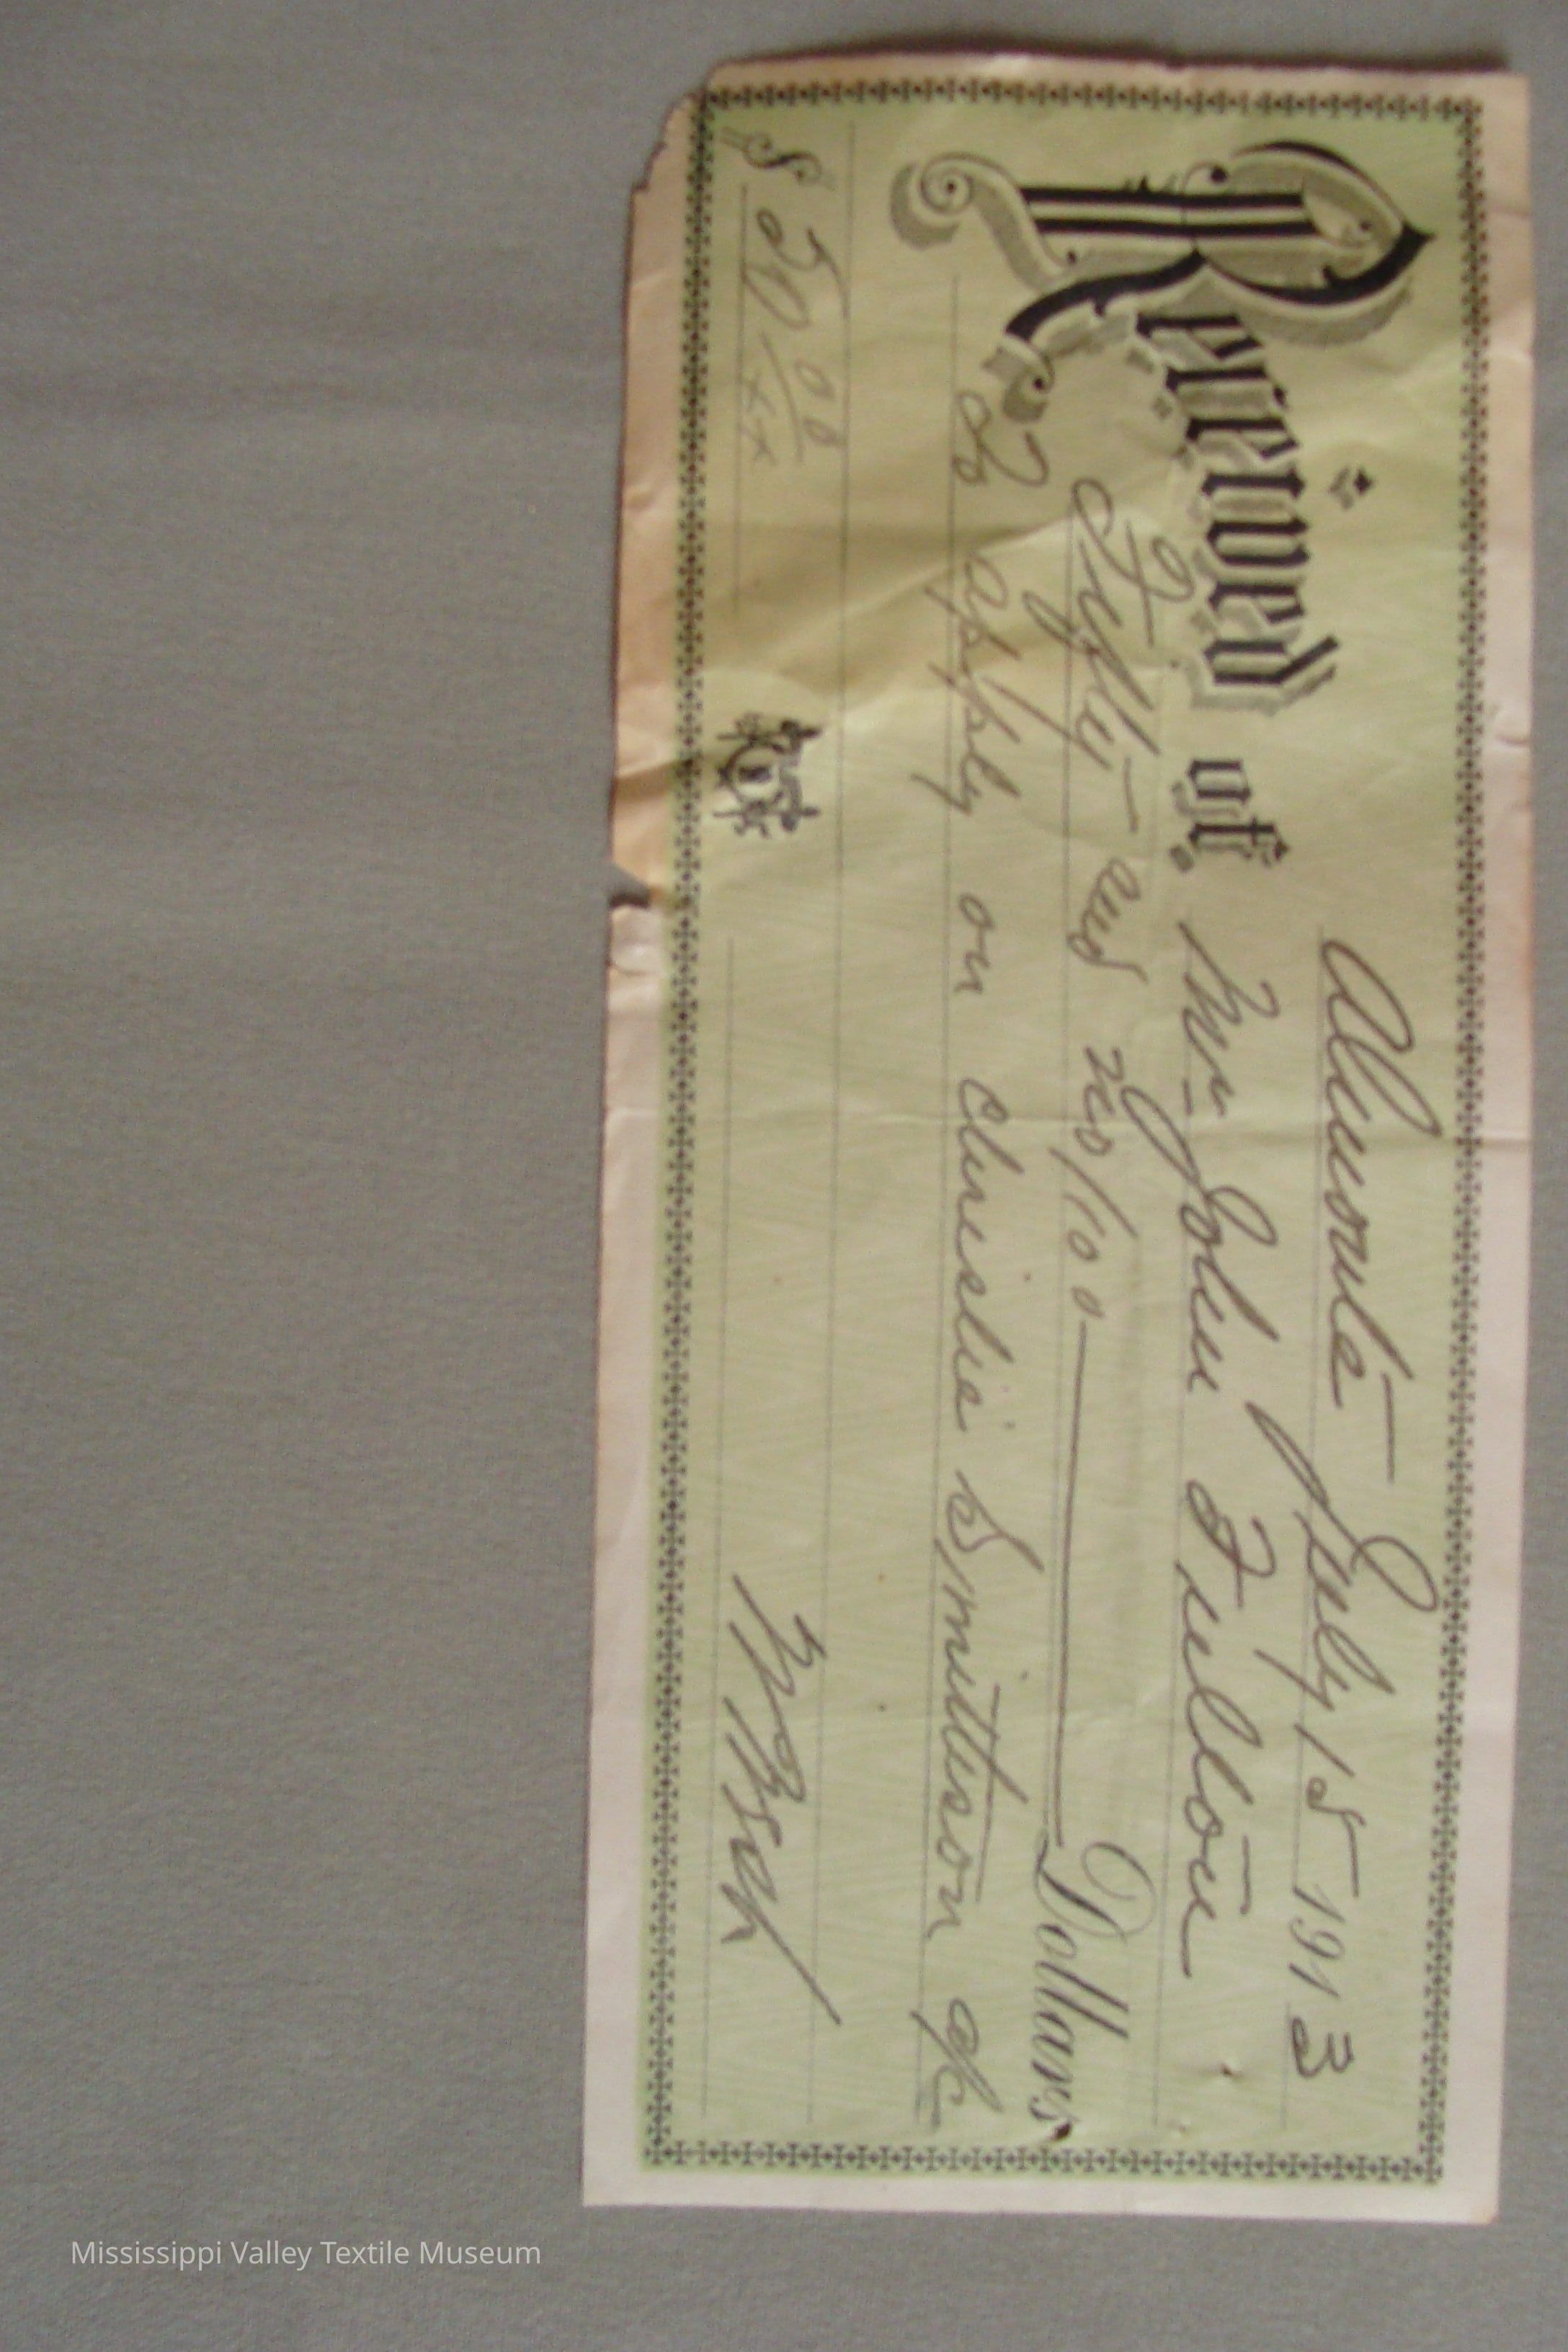 Almonte July 15 1913
Received of Mr John Fulton
Fifty - and no/100 Dollars
To apply on Christie Smitheson a/c
$ 50 00/xx
Mississippi Valley Textile Museum